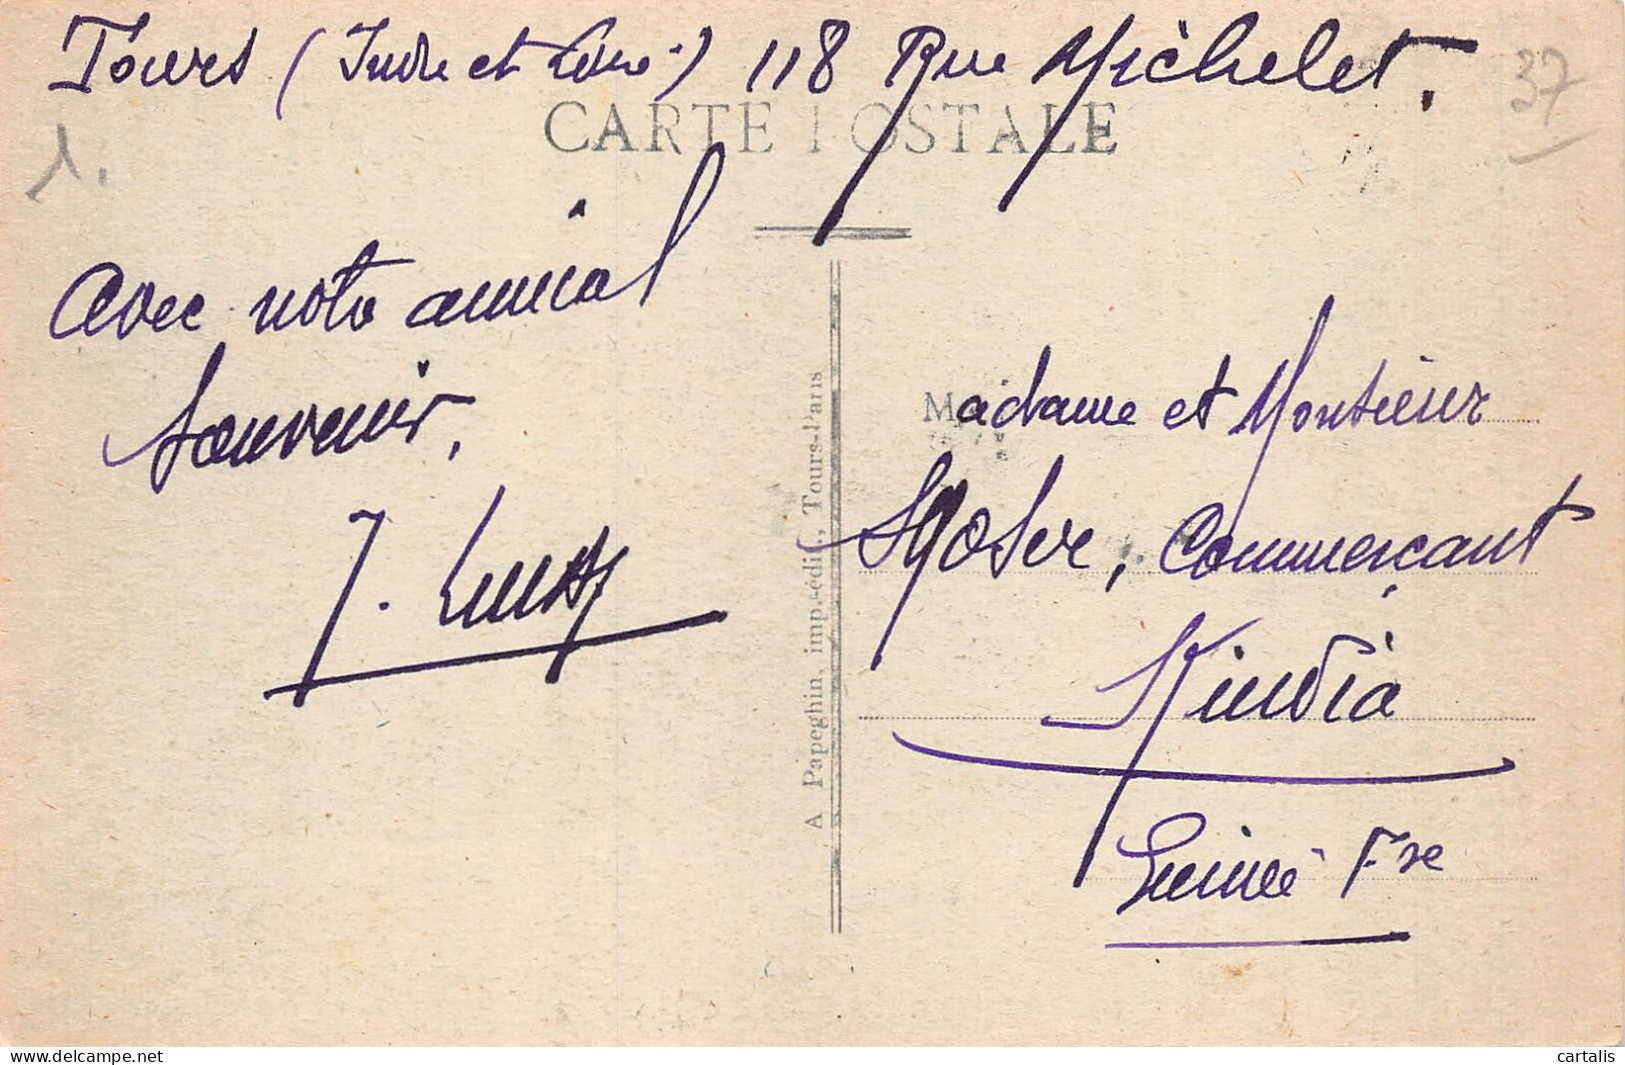 Tours (Indre et Loire) 118 Rue Michelet.
37
CARTE POSTALE
1.
Avec notre amical
souvenir.
J.
A Papeghin, imp.-édit., Tours-Paris
Madame et Monsieur
Moser, Commerçant
Kindia
Guinée Fse
www.delcampe.net
cartalis